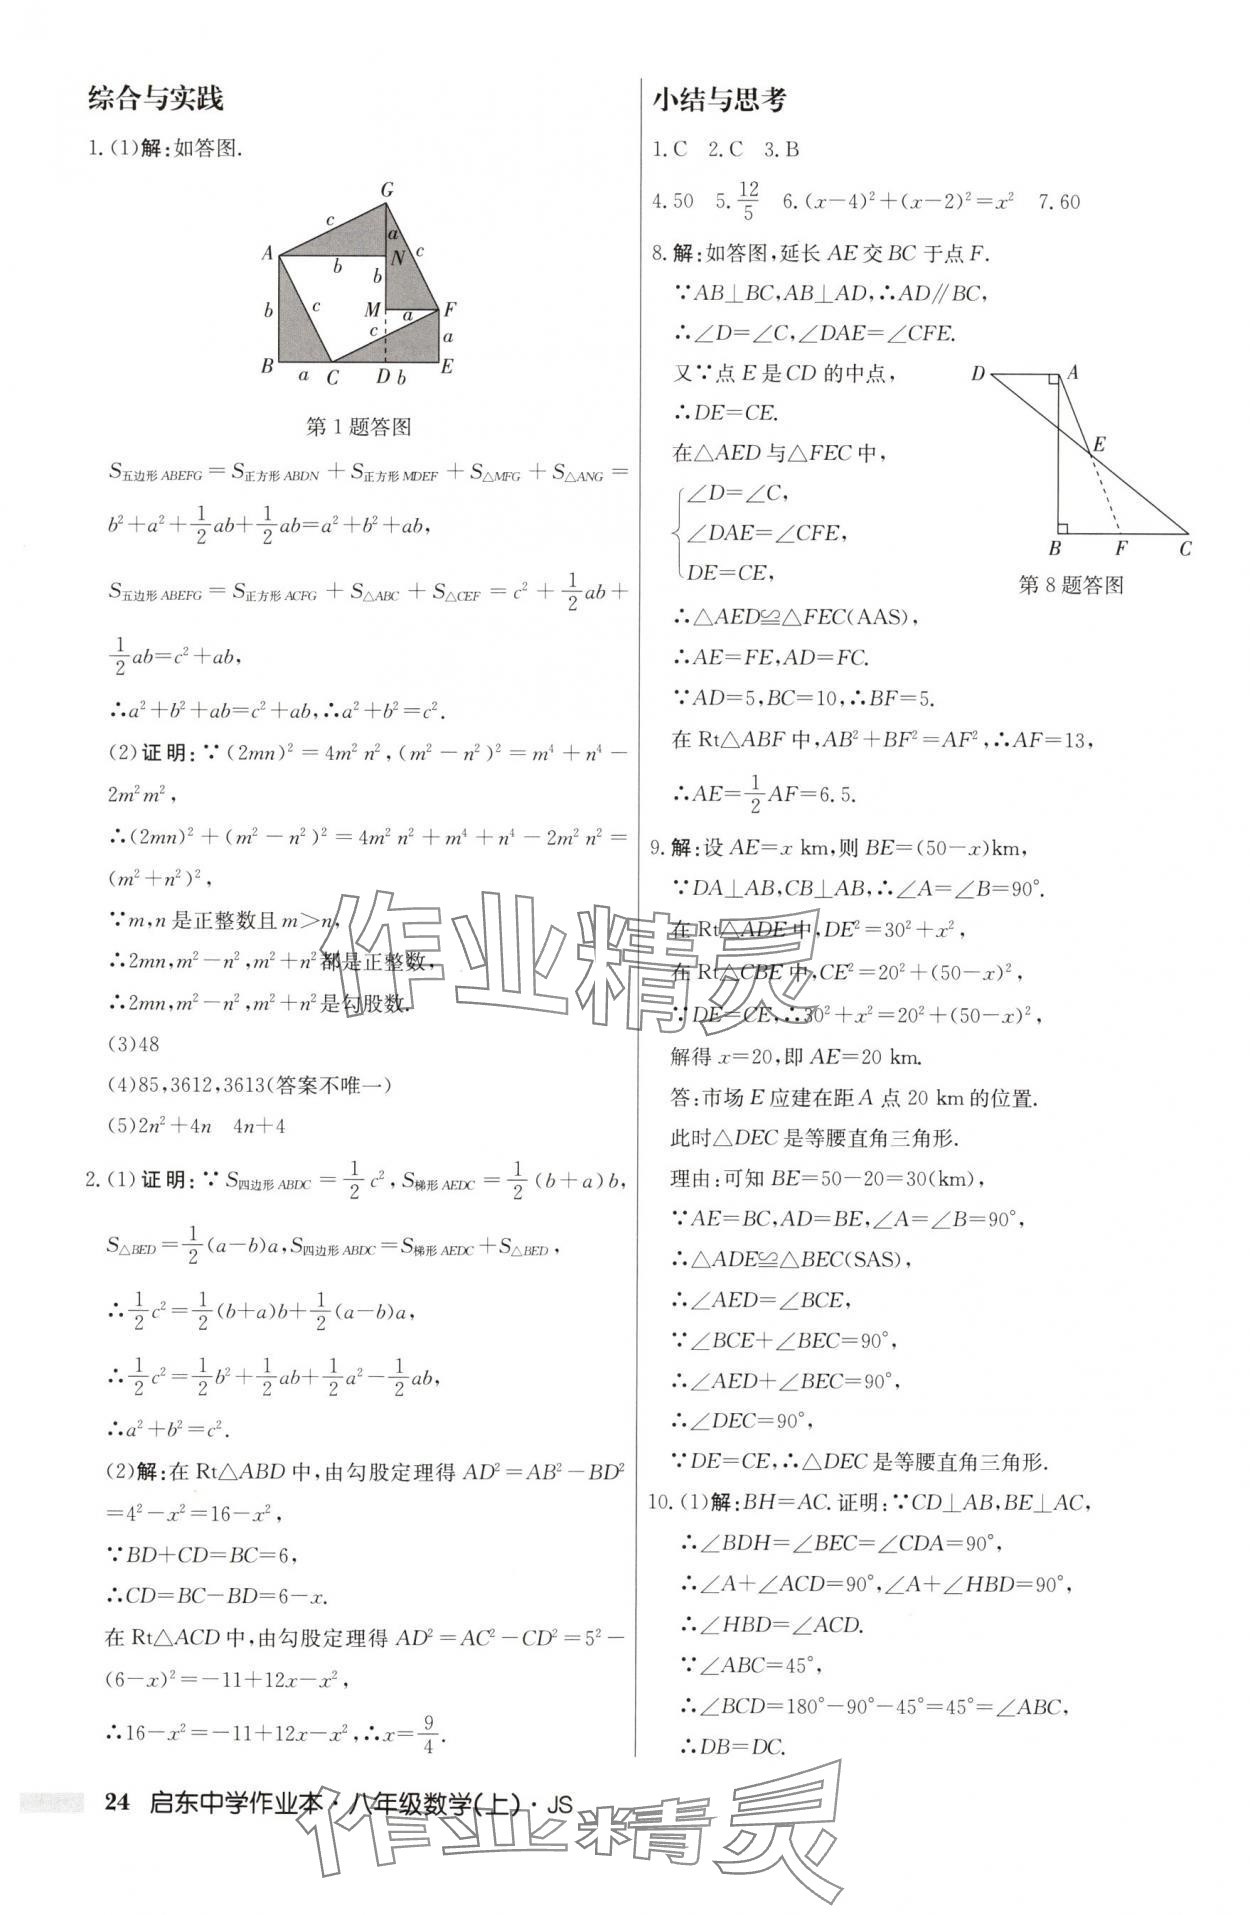 综合与实践
1.(1)解:如答图.
G
c
a
A
N
c
b
b
b
c
M
F
a
c
a
B
a
C
D
b
E
第1题答图
S五边形ABEFG=S正方形ABDN+S正方形MDEF+S△MFG+S△ANG=
b²+a²+1/2ab+1/2ab=a²+b²+ab,
S五边形ABEFG=S正方形ACFG+S△ABC+S△CEF=c²+1/2ab+
1/2ab=c²+ab,
∴a²+b²+ab=c²+ab,∴a²+b²=c².
(2)证明:∵(2mn)²=4m²n²,(m²-n²)²=m⁴+n⁴-
2m²m²,
∴(2mn)²+(m²-n²)²=4m²n²+m⁴+n⁴-2m²n²=
(m²+n²)²,
∵m,n是正整数且m>n,
∴2mn,m²-n²,m²+n²都是正整数,
∴2mn,m²-n²,m²+n²是勾股数.
(3)48
(4)85,3612,3613(答案不唯一)
(5)2n²+4n 4n+4
2.(1)证明:∵S四边形ABDC=1/2c²,S梯形AEDC=1/2(b+a)b,
S△BED=1/2(a-b)a,S四边形ABDC=S梯形AEDC+S△BED,
∴1/2c²=1/2(b+a)b+1/2(a-b)a,
∴1/2c²=1/2b²+1/2ab+1/2a²-1/2ab,
∴a²+b²=c².
(2)解:在Rt△ABD中,由勾股定理得AD²=AB²-BD²
=4²-x²=16-x²,
∵BD+CD=BC=6,
∴CD=BC-BD=6-x.
在Rt△ACD中,由勾股定理得AD²=AC²-CD²=5²-
(6-x)²=-11+12x-x²,
∴16-x²=-11+12x-x²,∴x=9/4.
小结与思考
1.C 2.C 3.B
4.50 5.12/5 6.(x-4)²+(x-2)²=x² 7.60
8.解:如答图,延长AE交BC于点F.
∵AB⊥BC,AB⊥AD,∴AD∥BC,
∴∠D=∠C,∠DAE=∠CFE.
又∵点E是CD的中点,
∴DE=CE.
在△AED与△FEC中,
∠D=∠C,
∠DAE=∠CFE,
DE=CE,
D
A
E
B
F
C
第8题答图
∴△AED≌△FEC(AAS),
∴AE=FE,AD=FC.
∵AD=5,BC=10,∴BF=5.
在Rt△ABF中,AB²+BF²=AF²,∴AF=13,
∴AE=1/2AF=6.5.
9.解:设AE=x km,则BE=(50-x)km,
∵DA⊥AB,CB⊥AB,∴∠A=∠B=90°.
在Rt△ADE中,DE²=30²+x²,
在Rt△CBE中,CE²=20²+(50-x)²,
∵DE=CE,∴30²+x²=20²+(50-x)²,
解得x=20,即AE=20 km.
答:市场E应建在距A点20 km的位置.
此时△DEC是等腰直角三角形.
理由:可知BE=50-20=30(km),
∵AE=BC,AD=BE,∠A=∠B=90°,
∴△ADE≌△BEC(SAS),
∴∠AED=∠BCE,
∵∠BCE+∠BEC=90°,
∴∠AED+∠BEC=90°,
∴∠DEC=90°,
∵DE=CE,∴△DEC是等腰直角三角形.
10.(1)解:BH=AC.证明:∵CD⊥AB,BE⊥AC,
∴∠BDH=∠BEC=∠CDA=90°,
∴∠A+∠ACD=90°,∠A+∠HBD=90°,
∴∠HBD=∠ACD.
∵∠ABC=45°,
∴∠BCD=180°-90°-45°=45°=∠ABC,
∴DB=DC.
作业精灵
24 启东中学作业本·八年级数学(上)·JS
作业精灵